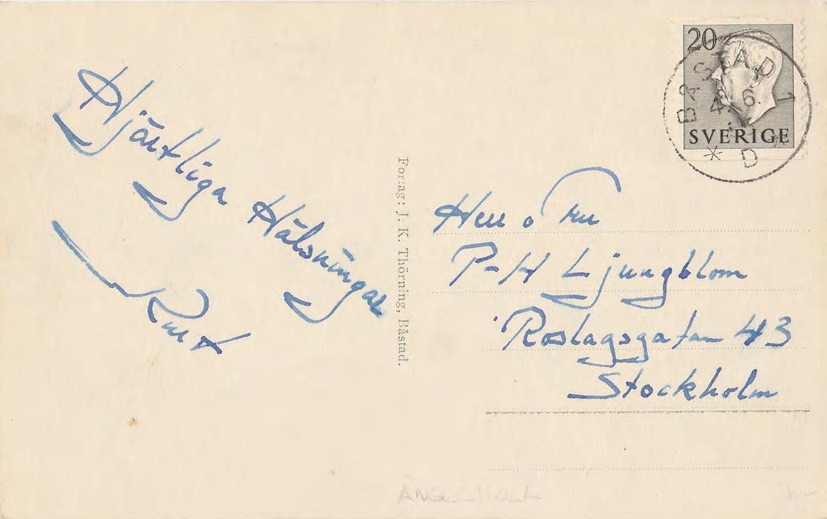 Hjärtliga Hälsningar
Kurt
Förlag: J. K. Thörning, Båstad.
20
SVERIGE
BÅSTAD 1
4. 6.
* D
Herr o Fru
P-H Ljungblom
Roslagsgatan 43
Stockholm